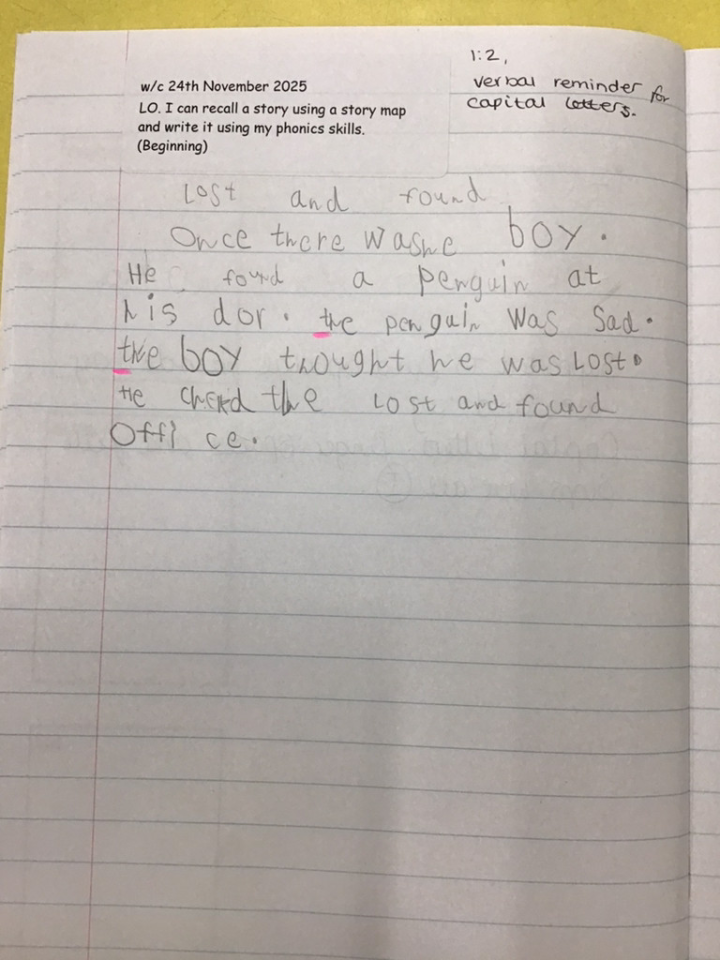 1:2,
verbal reminder for
capital letters.
w/c 24th November 2025
LO. I can recall a story using a story map
and write it using my phonics skills.
(Beginning)
Lost and found
Once there washe boy.
He found a penguin at
his dor. the penguin was sad.
the boy thought he was Lost.
He the Lost and found
Office.